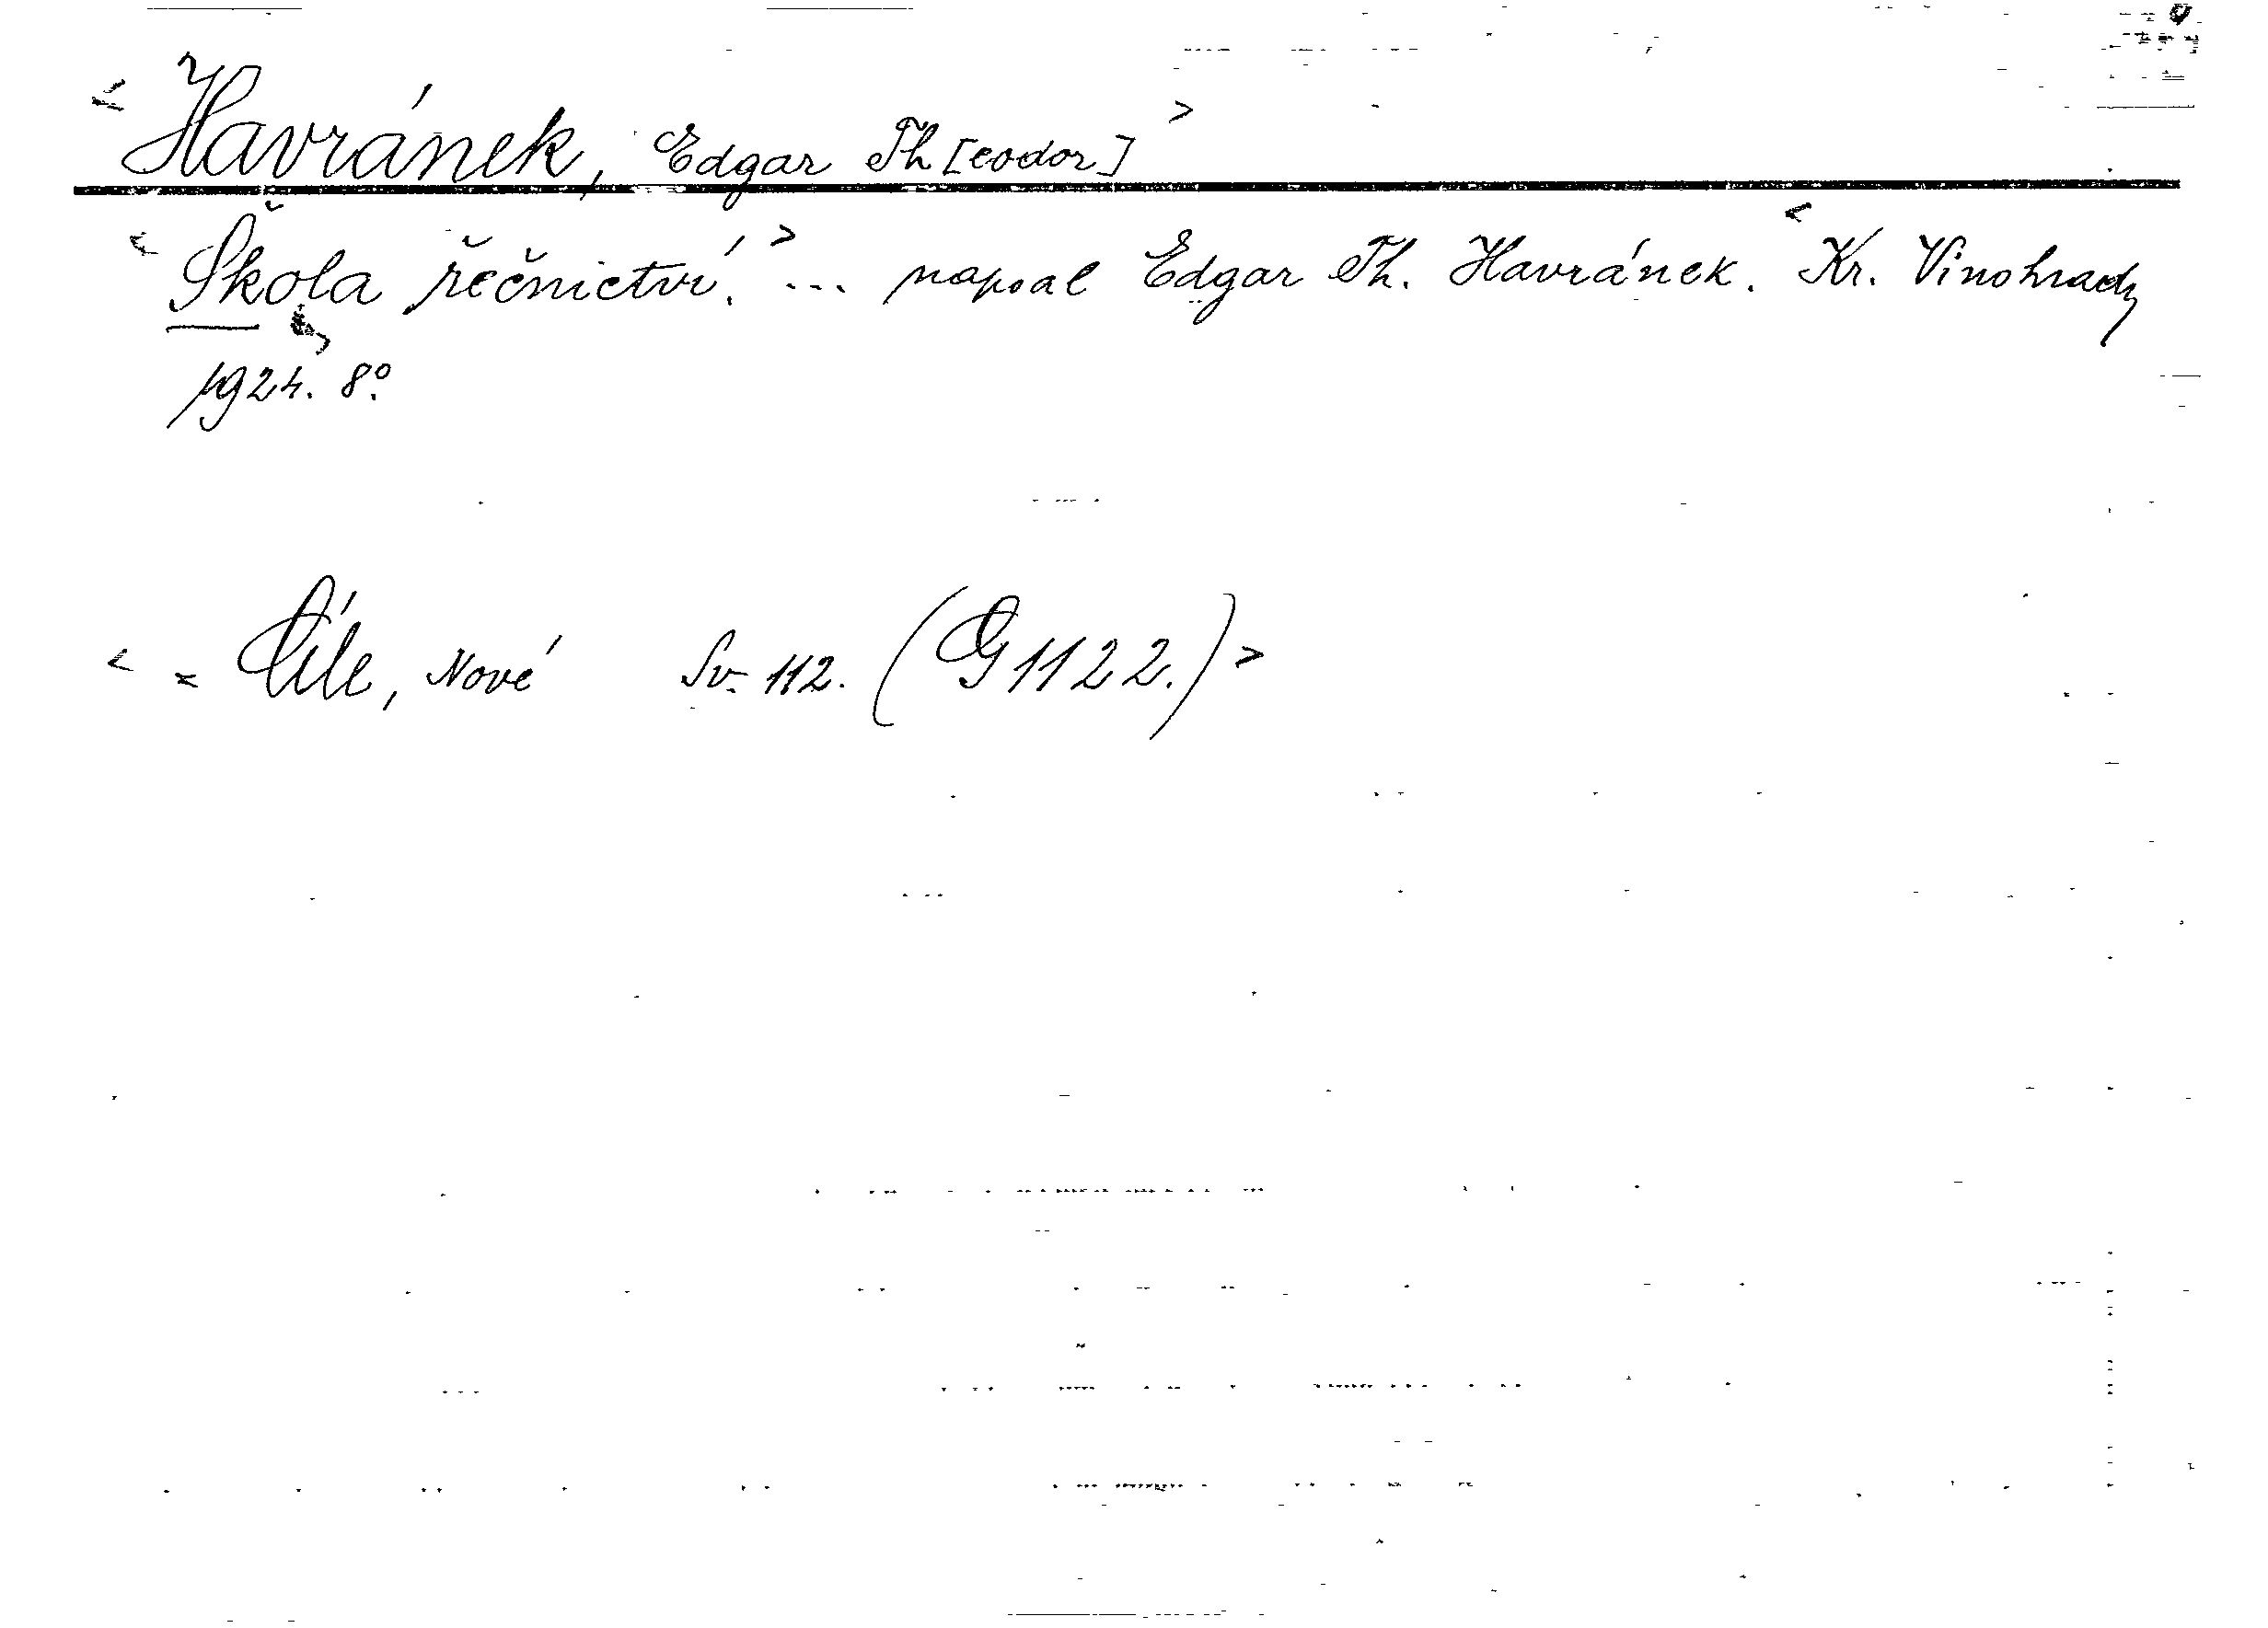 < Havránek, Edgar Th[eodor] >
< Škola řečnictví. > ... napsal Edgar Th. Havránek. < Kr. Vinohrady
1924. 8°.
< = Cíle, Nové Sv. 112. (G 1122.) >